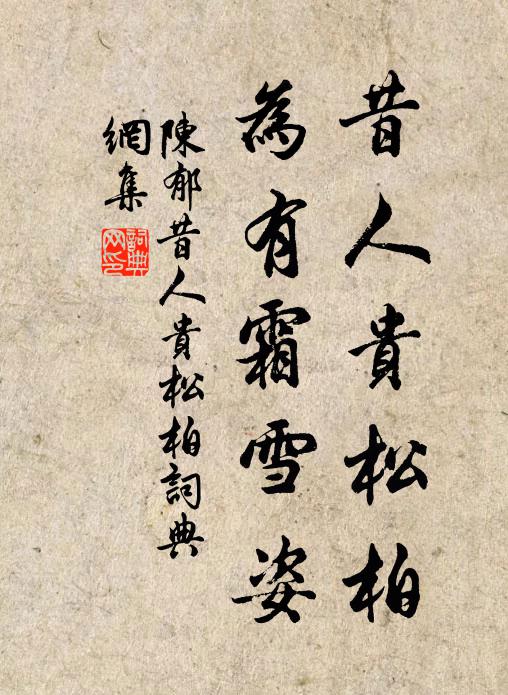 昔人貴松柏
為有霜雪姿
陳郁昔人貴松柏詞典
網集
詞典
网印